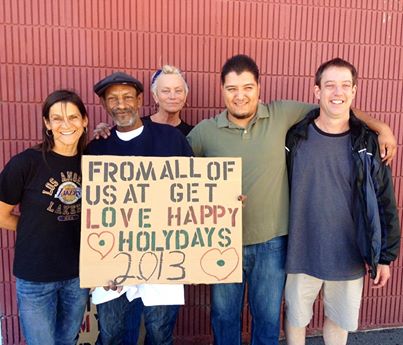 LOS ANGELES
LAKERS
FROM ALL OF
US AT GET
LOVE HAPPY
HOLYDAYS
2013